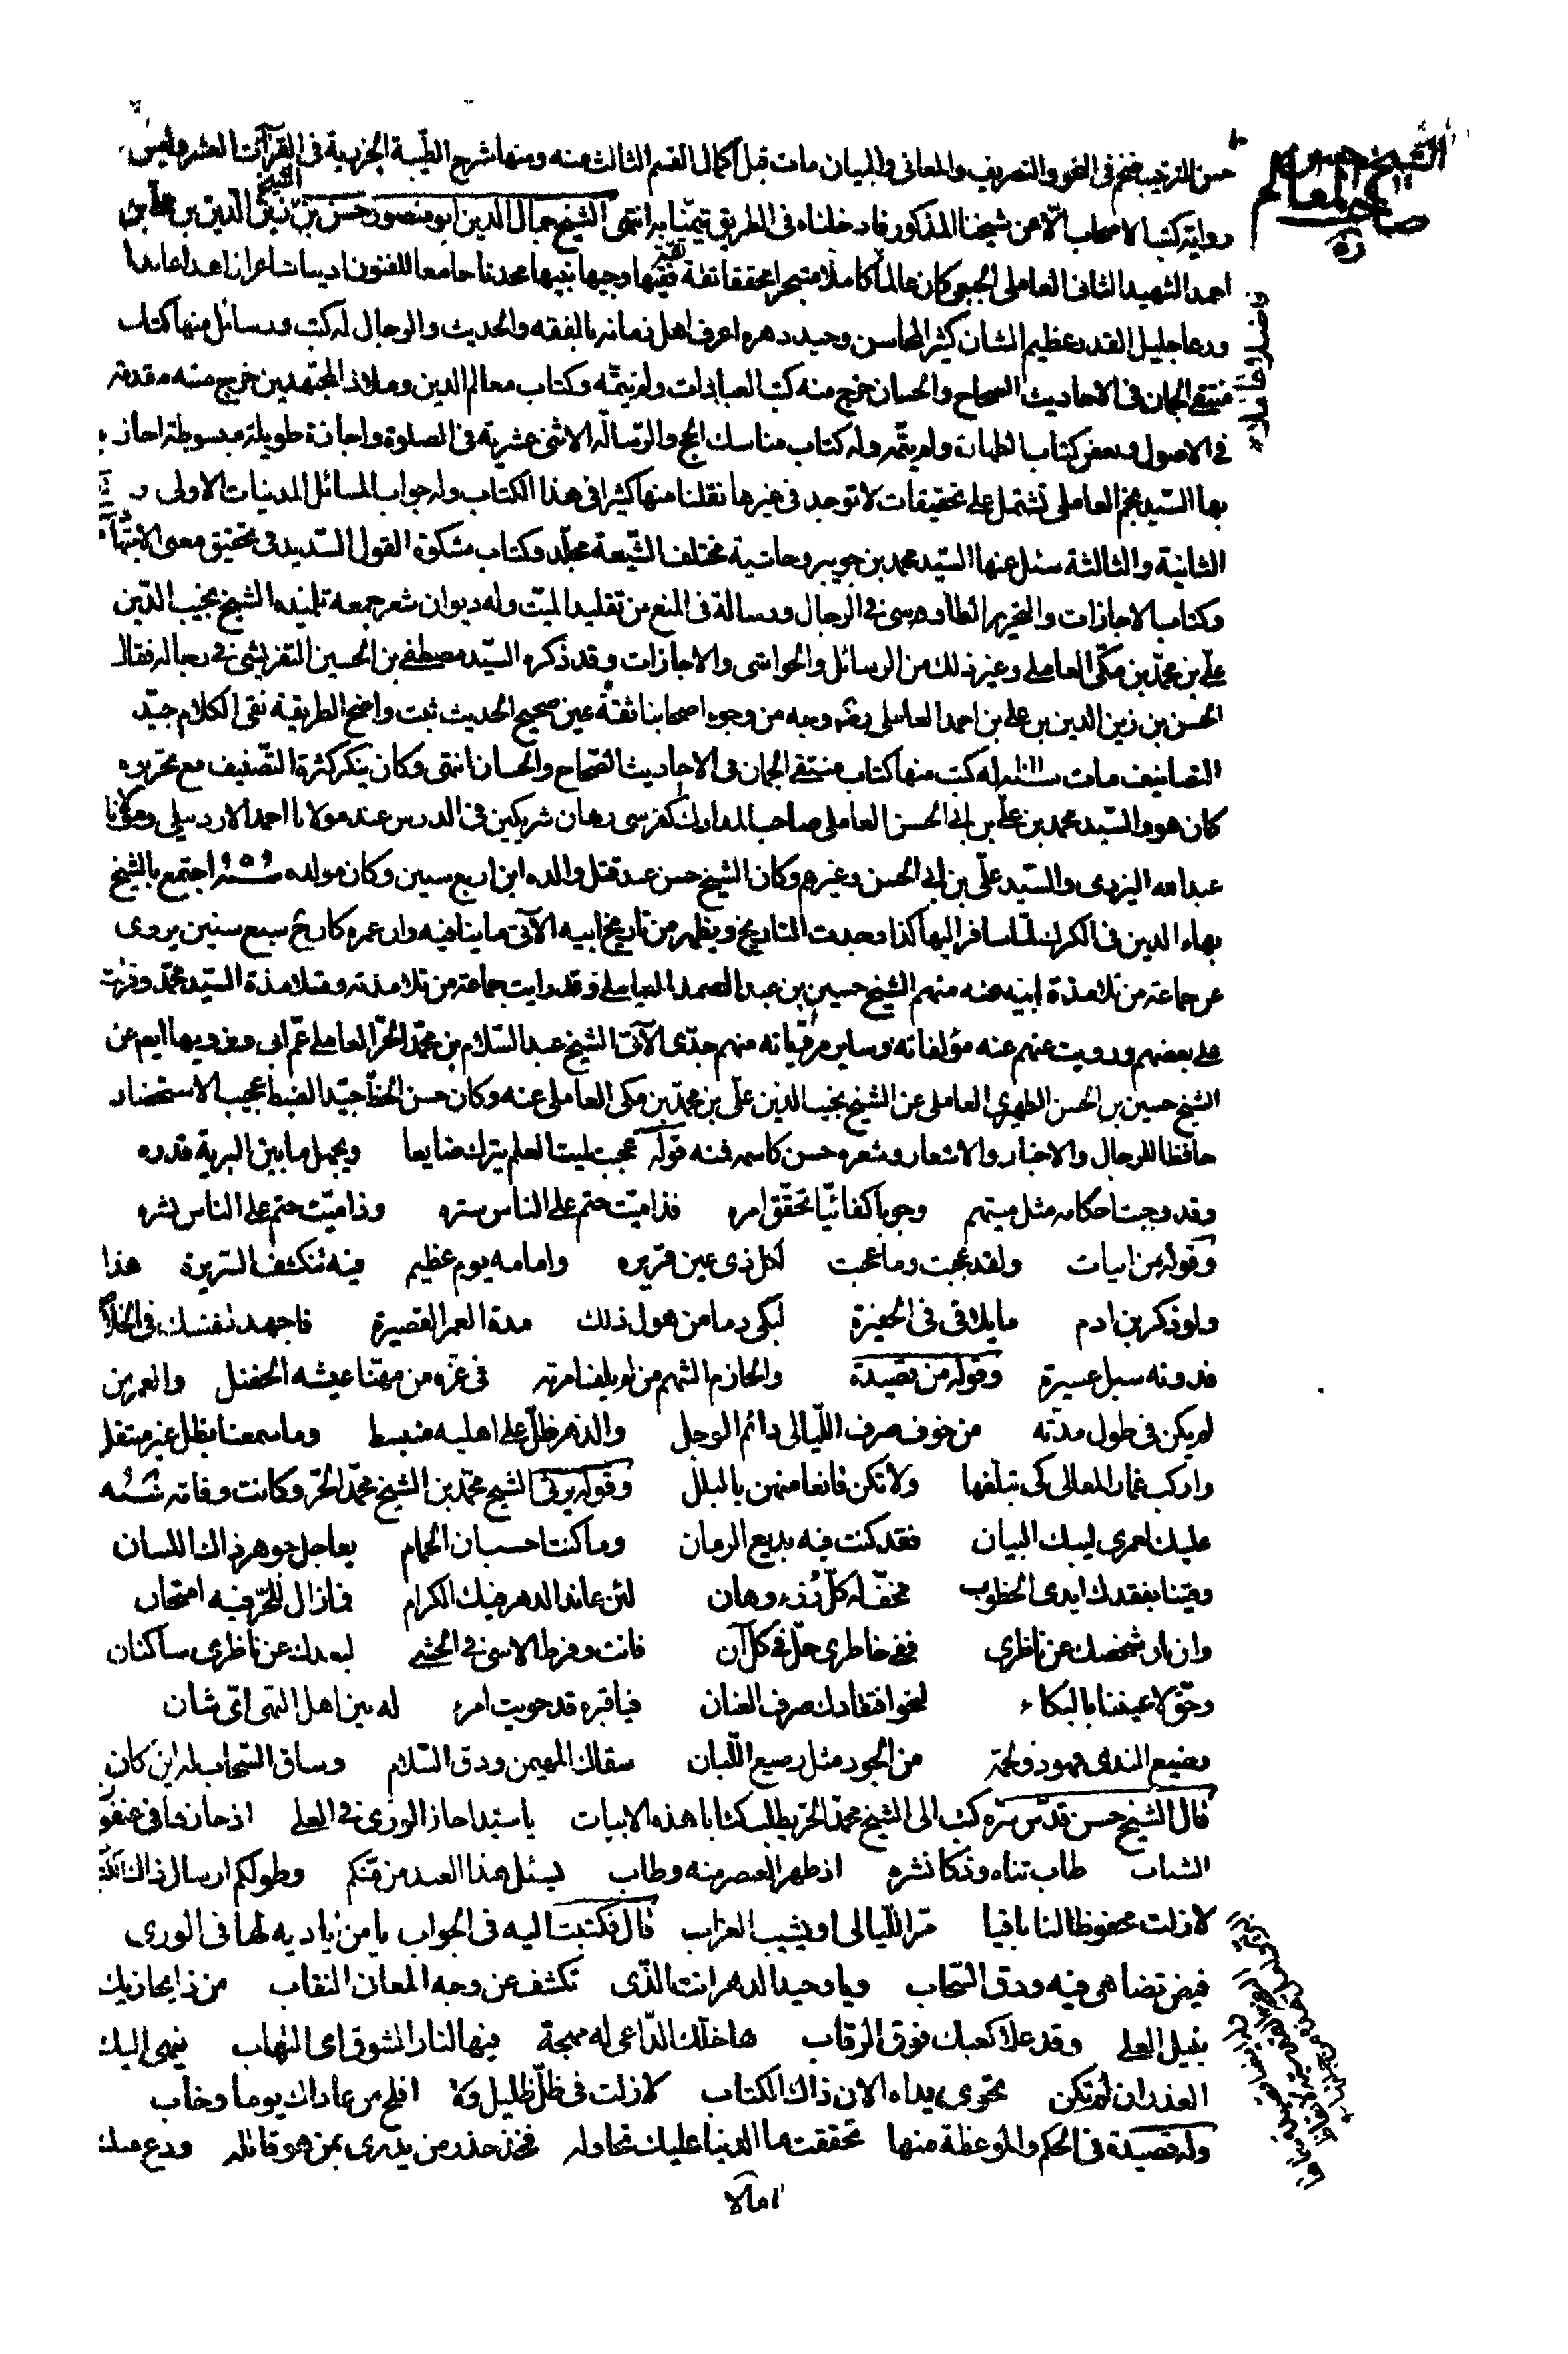 الشيخ حسن
صاحب المعالم
ره
حسن الترتيب ضخم فى النحو والتصريف والمعانى والبيان مات قبل اكمال القسم الثالث منه ومنها شرح الطيبة الجزرية فى القراآت العشر وليس
رواية كتب الاصحاب الا عن شيخنا المذكور فادخلناه فى الطريق تيمنا به انتهى الشيخ جمال الدين ابو منصور حسن بن الشيخ زين الدين بن على بن
احمد الشهيد الثانى العاملى الجبعى كان عالما كاملا متبحرا محققا ثقة ثقة فقيها وجيها نبيها محدثا جامعا للفنون اديبا شاعرا زاهدا عابدا
ورعا جليل القدر عظيم الشان كثير المحاسن وحيد دهره اعرف اهل زمانه بالفقه والحديث والرجال له كتب ورسائل منها كتاب
منتقى الجمان فى الاحاديث الصحاح والحسان خرج منه كتب العبادات ولم يتمه وكتاب معالم الدين وملاذ المجتهدين خرج منه مقدمته
فى الاصول وبعض كتاب الطهارة ولم يتمه وله كتاب مناسك الحج والرسالة الاثنى عشرية فى الصلوة واجازة طويلة مبسوطة اجاز
بها السيد نجم العاملى تشتمل على تحقيقات لا توجد فى غيرها نقلنا منها كثيرا فى هذا الكتاب وله جواب المسائل المدنيات الاولى و
الثانية والثالثة سئل عنها السيد محمد بن جويبر وحاشية مختلف الشيعة مجلد وكتاب مشكوة القول السديد فى تحقيق معنى الاجتهاد
وكتاب الاجازات والتحرير الطاوسى فى الرجال ورسالة فى المنع من تقليد الميت وله ديوان شعر جمعه تلميذه الشيخ نجيب الدين
على بن محمد بن مكى العاملى وغير ذلك من الرسائل والحواشى والاجازات وقد ذكره السيد مصطفى بن الحسين التفريشى فى رجاله فقال
الحسن بن زين الدين بن على بن احمد العاملى رضه وجه من وجوه اصحابنا ثقة عين صحيح الحديث ثبت واضح الطريقة نقى الكلام جيد
التصانيف مات سنة ١٠١١ له كتب منها كتاب منتقى الجمان فى الاحاديث الصحاح والحسان انتهى وكان ينكر كثرة التصنيف مع تحريره
كان هو والسيد محمد بن على بن ابى الحسن العاملى صاحب المدارك كفرسى رهان شريكين فى الدرس عند مولانا احمد الاردبيلى ومولانا
عبد الله اليزدى والسيد على بن ابى الحسن وغيرهم وكان الشيخ حسن عند قتل والده ابن اربع سنين وكان مولده سنة ٩٥٩ اجتمع بالشيخ
بهاء الدين فى الكرك لما سافر اليها كذا وجدت التاريخ ويظهر من تاريخ ابيه الآتى ما ينافيه وان عمره كان ح سبع سنين يروى
عن جماعة من تلامذة ابيه عنه منهم الشيخ حسين بن عبد الصمد العاملى وقد رايت جماعة من تلامذته وتلامذة السيد محمد وقرات
على بعضهم ورويت عنهم عنه مؤلفاته وساير مروياته منهم جدى الآتى الشيخ عبد السلام بن محمد الحر العاملى عم ابى ونرويها ايض عن
الشيخ حسين بن الحسن الظهيرى العاملى عن الشيخ نجيب الدين على بن محمد بن مكى العاملى عنه وكان حسن الخط جيد الضبط عجيب الاستحضار
حافظا للرجال والاخبار والاشعار وشعره حسن كاسمه فمنه قوله عجبت لميت العلم يترك ضايعا ويجهل ما بين البرية قدره
وقد وجبت احكامه مثل ميتهم وجوبا كفائيا تحقق امره فذا ميت حتم على الناس ستره وذا ميت حتم على الناس نشره
وقوله من ابيات ولقد عجبت وما عجبت لكل ذى عين قريره وامامه يوم عظيم فيه تنكشف السريرة هذا
ولو ذكر بن ادم ما يلاقى فى الحفيرة لبكى دما من هول ذلك مدة العمر القصيرة فاجهد لنفسك فى الخلاص
فدونه سبل عسيرة وقوله من قصيدة والحازم الشهم من لم يلف امرته فى غرة من مهنا عيشه الخضل والغمر من
لم يكن فى طول مدته من خوف صرف الليالى دائم الوجل والدهر ظل على اهليه منبسط وما سمعنا بظل غير منتقل
واركب غمار المعالى كى تبلغها ولا تكن قانعا منهن بالبلل وقوله يرثى الشيخ محمد بن الشيخ محمد الحر وكانت وفاته سنة ٩٨٠
عليك لعمرى ليبك البيان فقد كنت فيه بديع الزمان وما كنت احسب ان الحمام يعاجل جوهر ذاك اللسان
رمتنا بفقدك ايدى الخطوب فخف له كل رزء وهان لئن عاند الدهر فيك الكرام فما زال للحر فيه امتحان
وان بان شخصك عن ناظرى ففى خاطرى حل فى كل آن فانت وفرط الاسى فى الحشى لبعدك عن ناظرى ساكنان
وحق لاعيننا بالبكاء لنحو افتقادك صرف العنان فيا قبره قد حويت امرء له بين اهل النهى اى شان
رضيع الندى فهو ذو لحمة من الجود مثل رضيع اللبان سقاك المهيمن ودق السلام وساق السحاب له اين كان
قال الشيخ حسن قدس سره كتب الى الشيخ محمد الحر يطلب كتابا هذه الابيات يا سيدا حاز الورى فى العلى اذ حازها فى عنفوان
الشباب طاب ثناه وذكا نشره اذ طهر العنصر منه وطاب يسئل هذا العبد من منكم وطولكم ارسال ذاك الكتاب
لا زلت محفوظا لنا باقيا مر الليالى او يشيب الغراب قال فكتبت اليه فى الجواب يا من اياديه لها فى الورى
فيض تضاهى فيه ودق السحاب ويا وحيد الدهر انت الذى تكشف عن وجه المعان النقاب من ذا يجازيك
بنيل العلى وقد علا كعبك فوق الرقاب ها خلك الداعى له مهجة فيها لنار الشوق اى التهاب ينهى اليك
العذر ان لم تكن تحتوى يداه الان ذاك الكتاب لا زلت فى ظل ظليل ولا افلح من عاداك يوما وخاب
وله قصيدة فى الحكم والموعظة منها تحققت ما الدنيا عليك تحاوله فخذ حذر من يدرى بمن هو قاتله ودع عنك
امالا